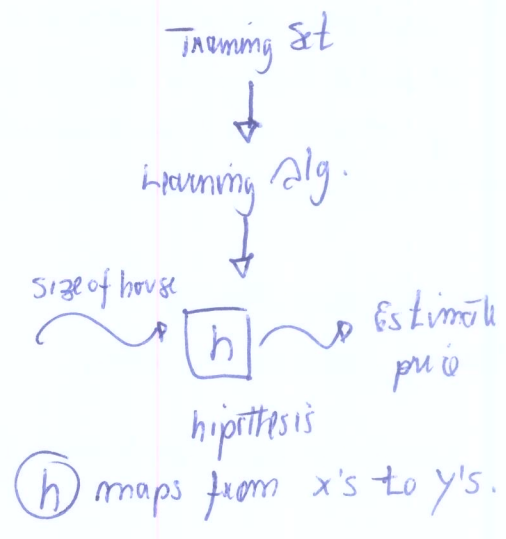 Training Set
Learning Alg.
size of house
h
Estimate
price
hipothesis
h maps from x's to y's.